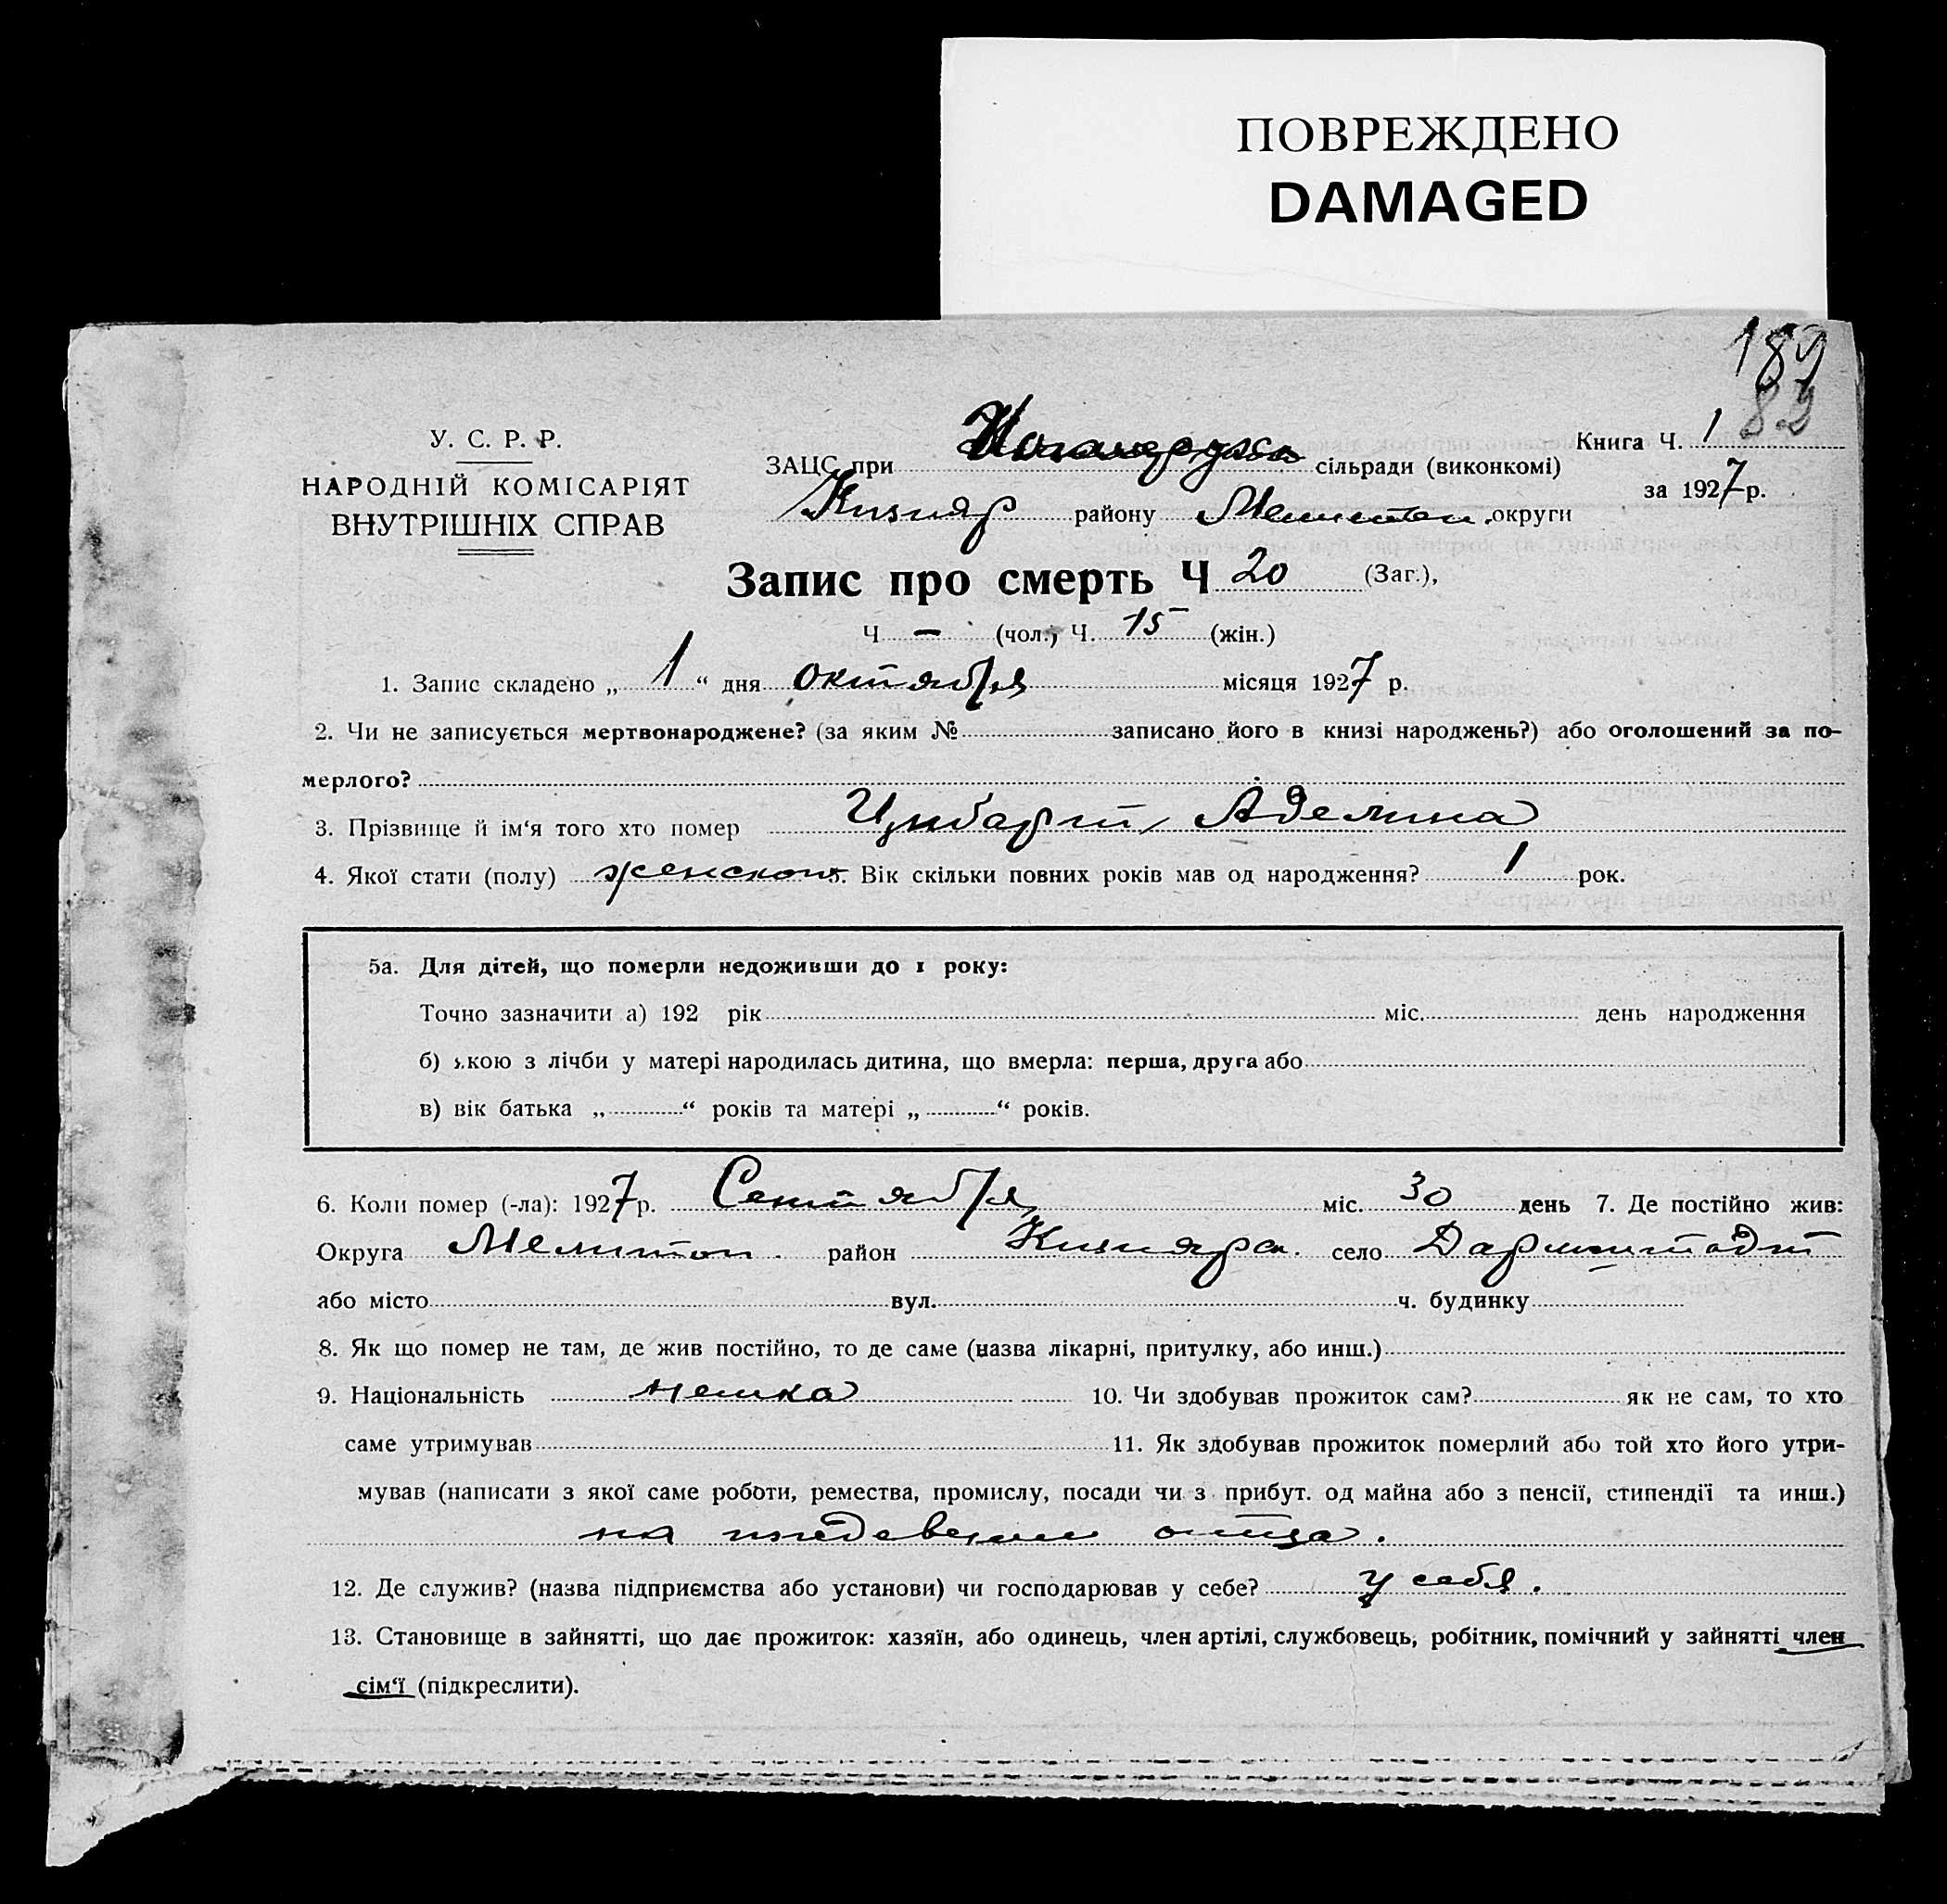 ПОВРЕЖДЕНО
DAMAGED
189
83
У. С. Р. Р.
НАРОДНІЙ КОМІСАРІЯТ
ВНУТРІШНІХ СПРАВ
Книга Ч. 1
за 1927 р.
ЗАЦС при сільради (виконкомі)
Кизияр району Мелитоп. округи
Запис про смерть Ч 20 (Заг.),
Ч — (чол.) Ч. 15 (жін.)
1. Запис складено „ 1 “ дня октября місяця 1927 р.
2. Чи не записується мертвонароджене? (за яким № записано його в книзі народжень?) або оголошений за по-
мерлого?
3. Прізвище й ім‘я того хто помер Цибарт Аделина
4. Якої стати (полу) женского. Вік скільки повних років мав од народження? 1 рок.
5а. Для дітей, що померли недоживши до 1 року:
Точно зазначити а) 192 рік міс. день народження
б) якою з лічби у матері народилась дитина, що вмерла: перша, друга або
в) вік батька „ “ років та матері „ “ років.
6. Коли помер (-ла): 1927 р. Сентября міс. 30 день 7. Де постійно жив:
Округа Мелитоп. район Кизияра. село Дармштадт
або місто вул. ч. будинку
8. Як що помер не там, де жив постійно, то де саме (назва лікарні, притулку, або инш.)
9. Національність немка 10. Чи здобував прожиток сам? як не сам, то хто
саме утримував 11. Як здобував прожиток померлий або той хто його утри-
мував (написати з якої саме роботи, ремества, промислу, посади чи з прибут. од майна або з пенсії, стипендії та инш.)
на иждевении отца.
12. Де служив? (назва підприємства або установи) чи господарював у себе? у себя.
13. Становище в зайнятті, що дає прожиток: хазяїн, або одинець, член артілі, службовець, робітник, помічний у зайнятті член
сім‘ї (підкреслити).